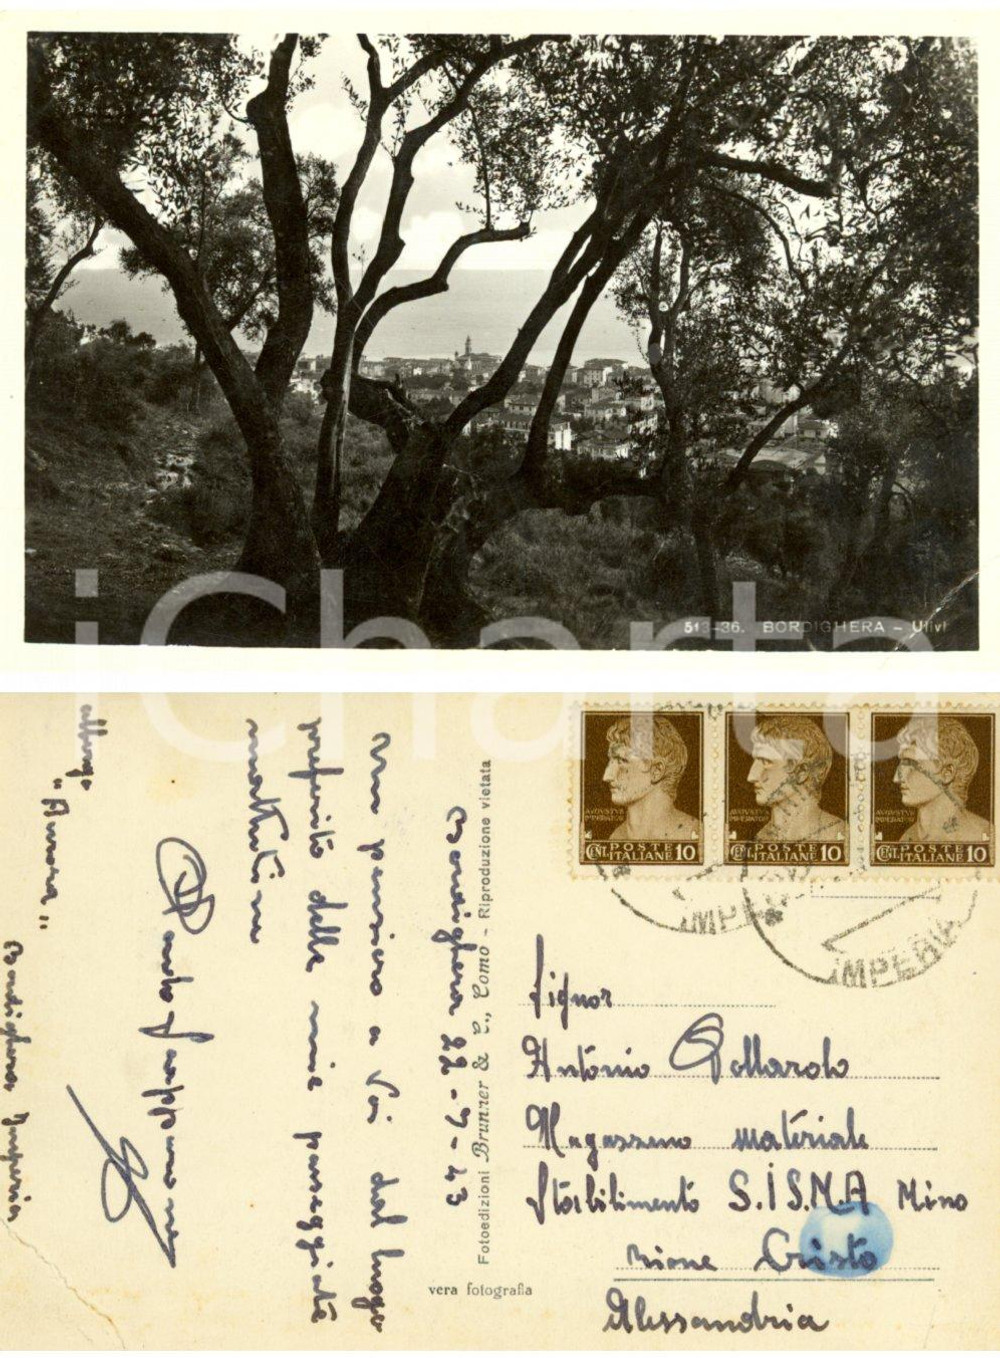 513-36. BORDIGHERA - Ulivi
iCharta
albergo
"Aurora"
Bordighera Imperia
Bordighera 22-7-43
un pensiero a Voi dal luogo
preferito delle mie passeggiate
mattutine
Fotoedizioni Brunner & C., Como - Riproduzione vietata
vera fotografia
AVGVSTVS
IMPERATOR
CENT. POSTE ITALIANE 10
AVGVSTVS
IMPERATOR
CENT. POSTE ITALIANE 10
AVGVSTVS
IMPERATOR
CENT. POSTE ITALIANE 10
IMPERIA
IMPERIA
Signor
Antonio Pollarolo
Magazzeno materiale
Stabilimento S.I.S.M.A Mino
zione Cristo
Alessandria